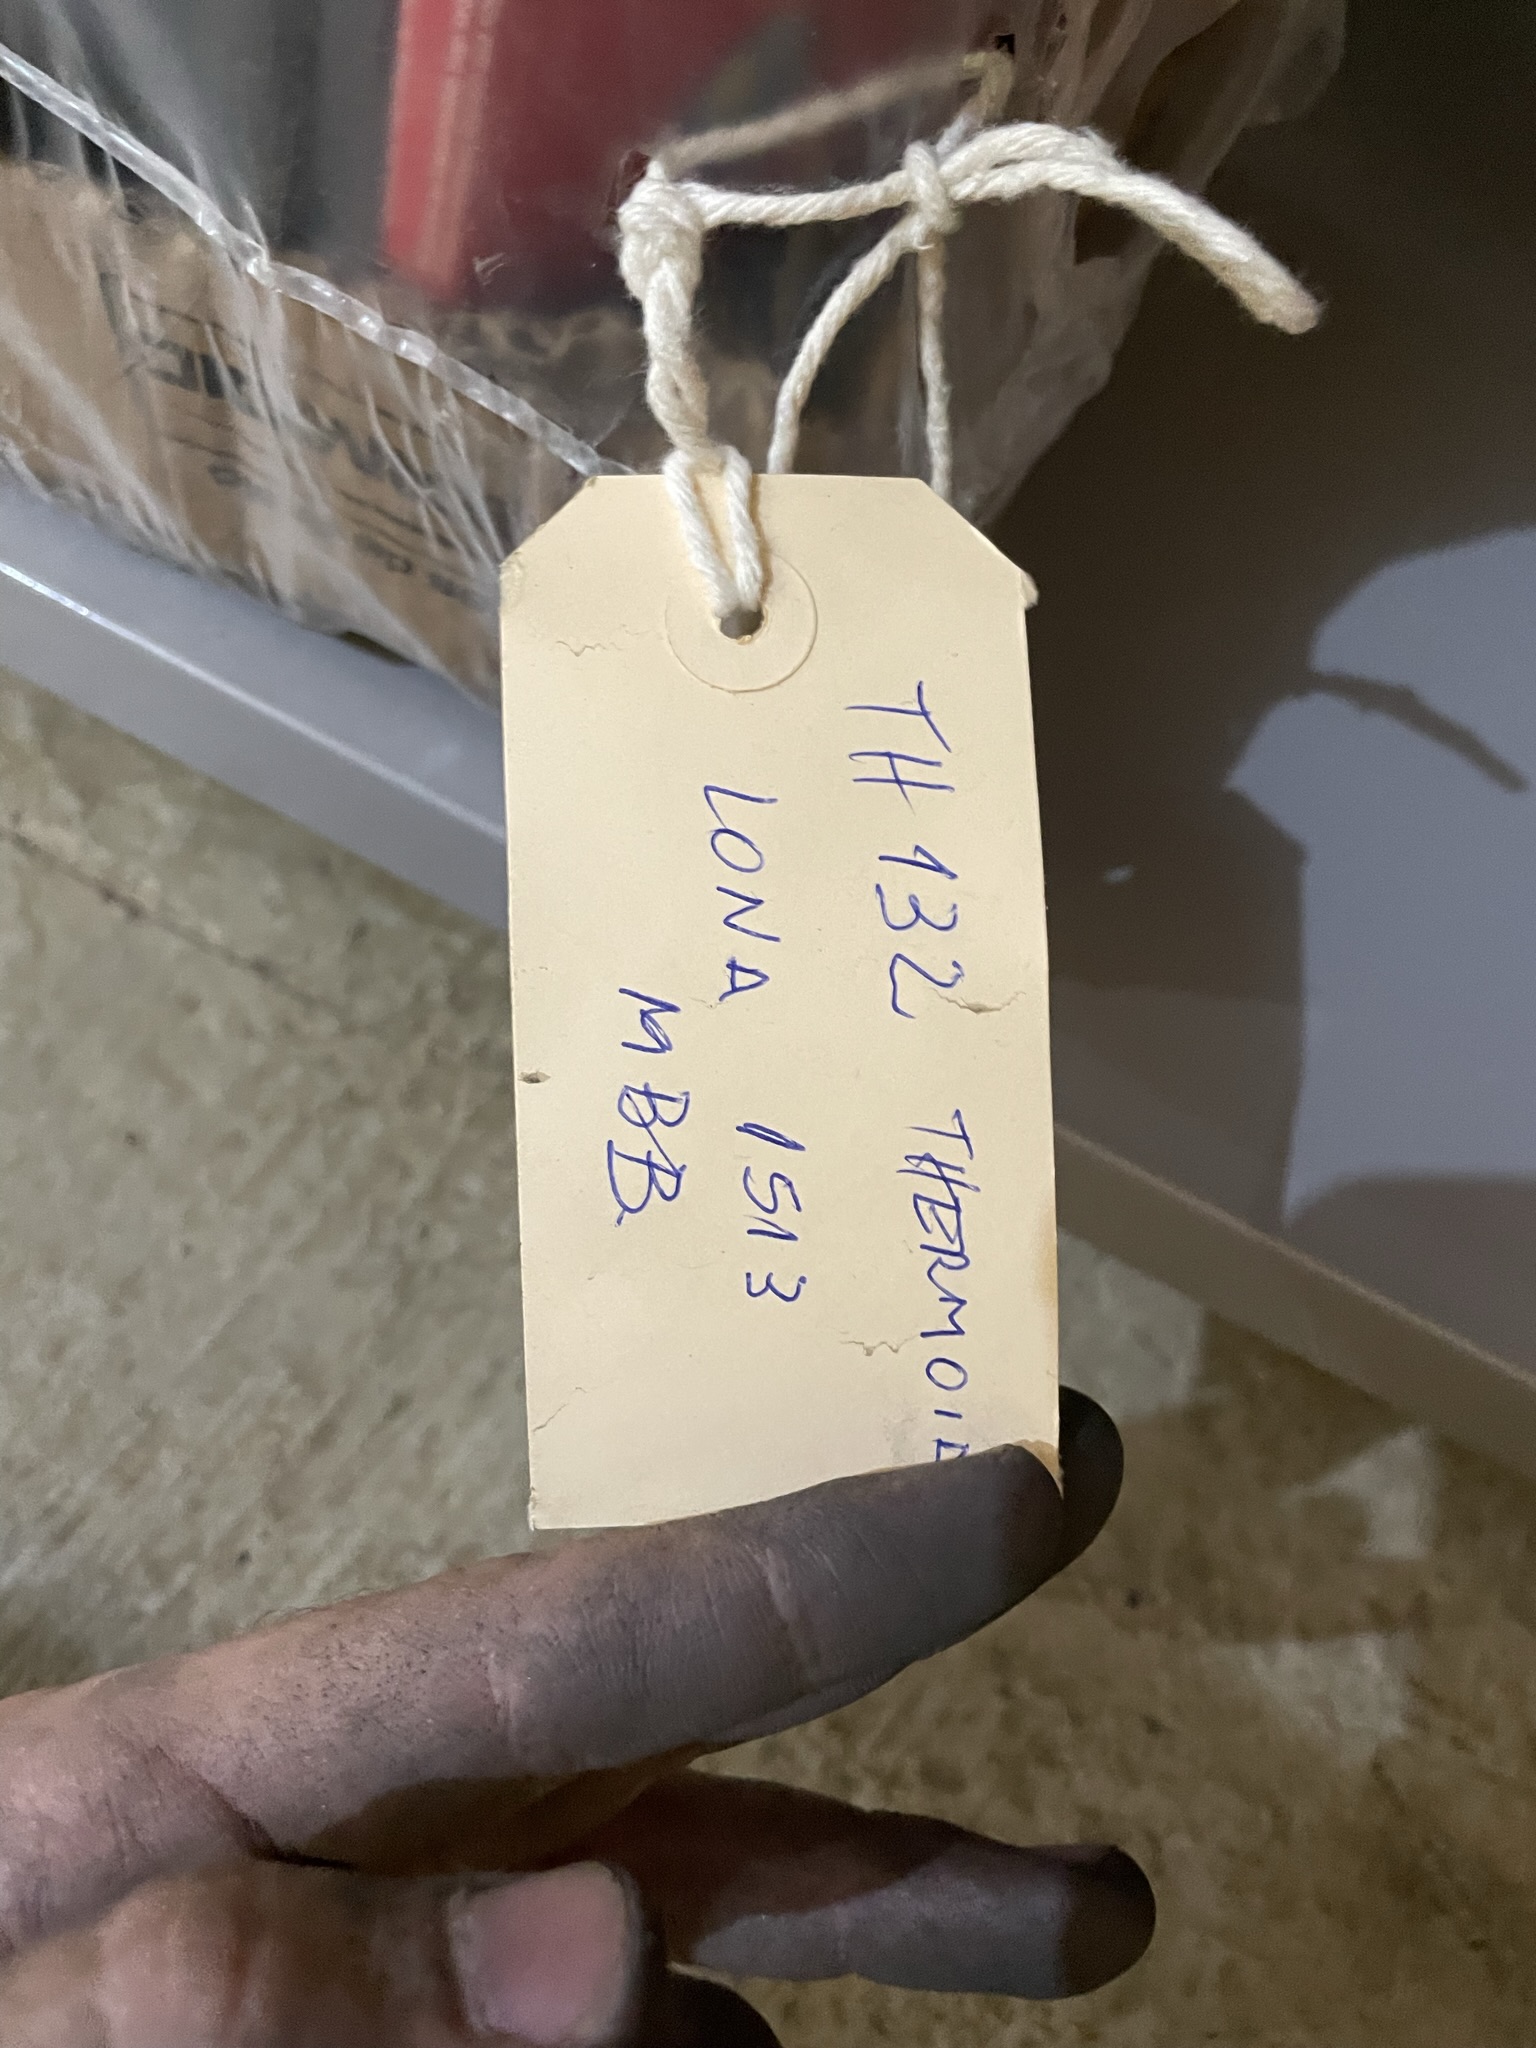 TH 132 THERMOID
LONA 1513
MBB